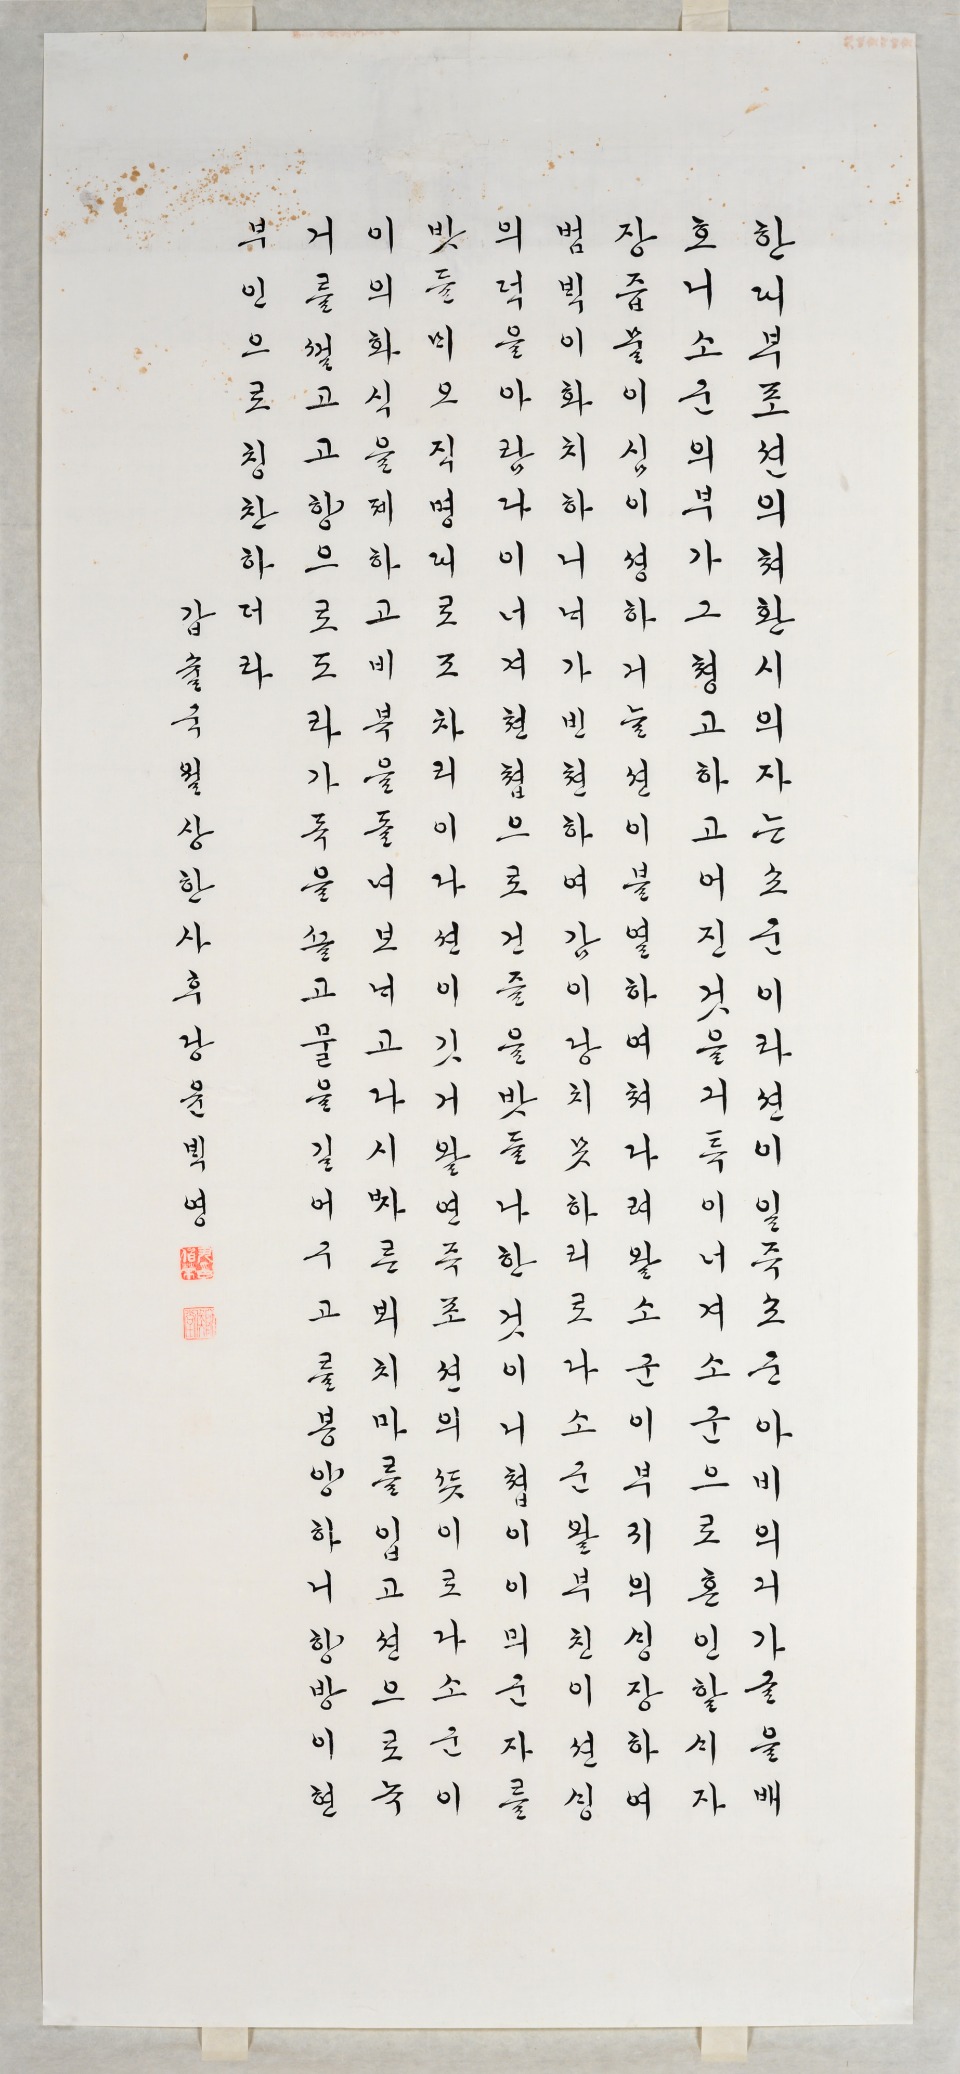 한ᄯᅢ부포션의쳐환시의자는쇼군이라션이일죽쇼군아비의긔가글을배
호니소군의부가그쳥고하고어진것을긔특이너겨소군으로혼인할ᄉᆡ자
장즙물이심이셩하거늘션이불열하여쳐다려왈소군이부귀의ᄉᆡᆼ장하여
범ᄇᆡᆨ이화치하니ᄂᆡ가빈쳔하여감이당치못하리로다소군왈부친이션ᄉᆡᆼ
의덕을아람다이너겨쳔쳡으로건즐을밧들나한것이니쳡이이믜군자를
밧들ᄆᆡ오직명ᄃᆡ로조차리이다션이깃거왈연즉포션의ᄯᅳᆺ이로다소군이
이의화식을졔하고비복을돌녀보ᄂᆡ고다시ᄶᅡ른뵈치마를입고션으로녹
거를ᄭᅳᆯ고고향으로도라가독을ᄭᅳᆯ고물을길어구고를봉양하니향방이현
부인으로칭찬하더라
갑슐국월상한사후당윤ᄇᆡᆨ영